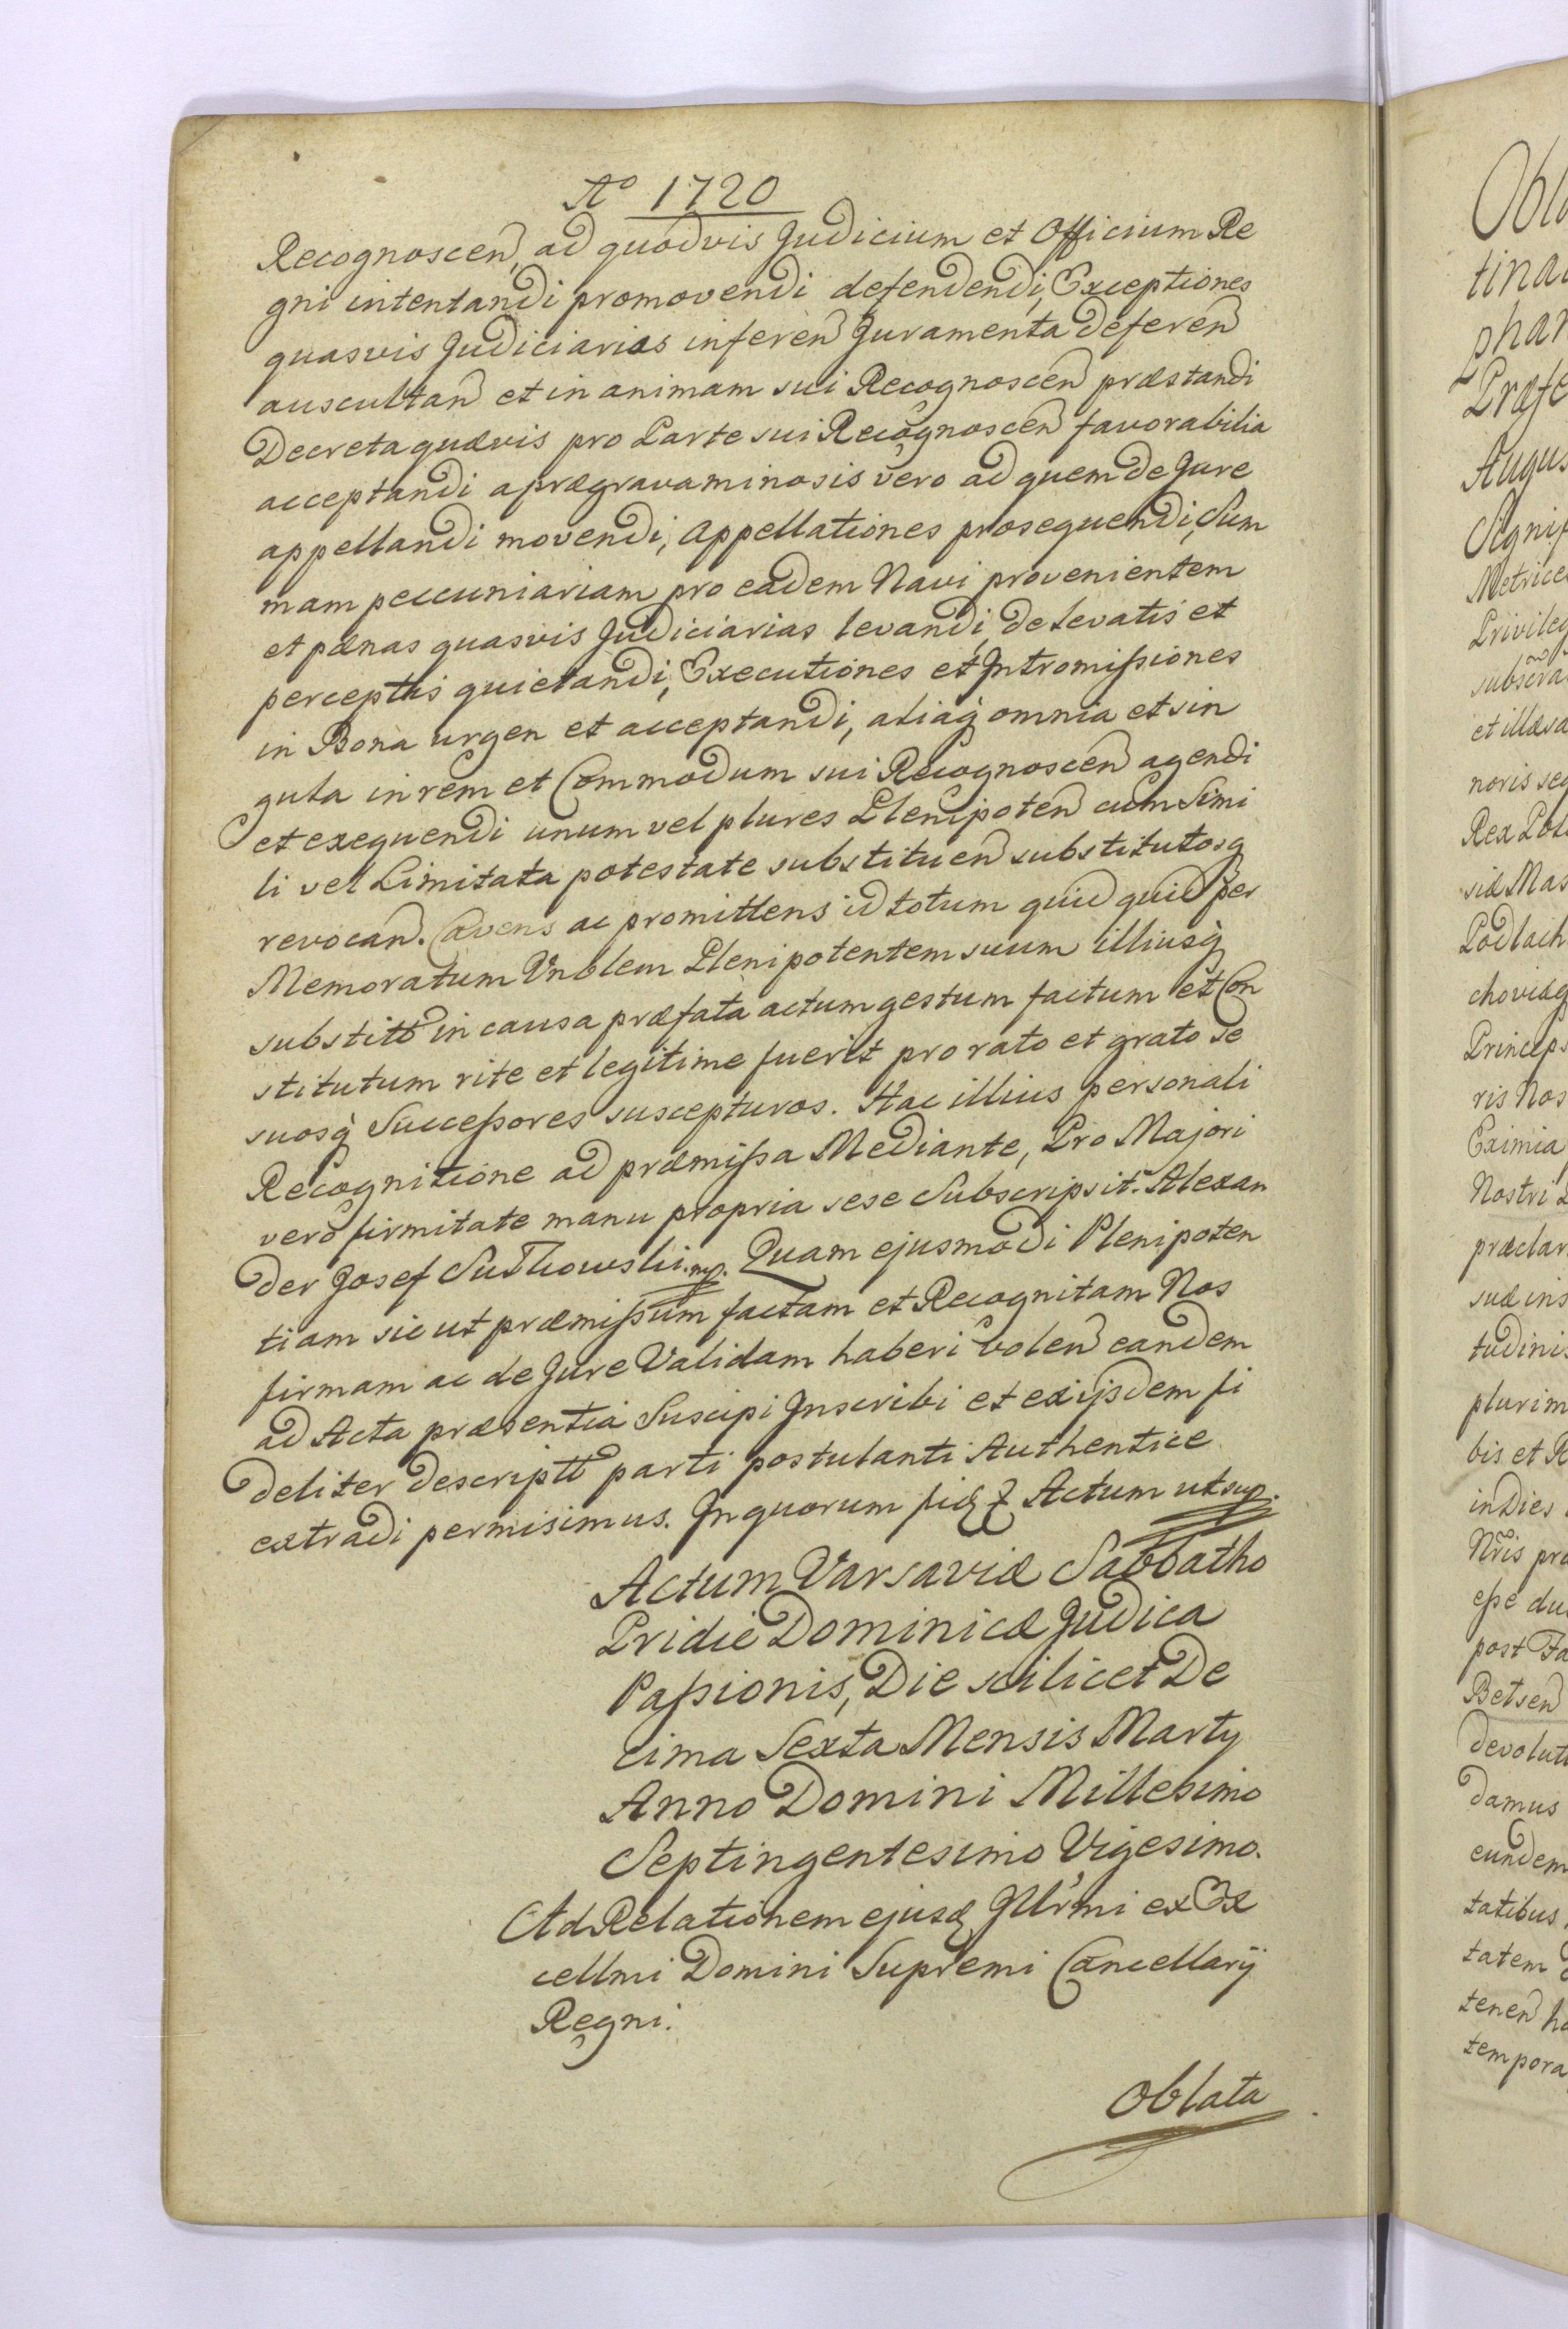 Aº 1720
Recognoscen, ad quodvis Judicium et Officium Re
gni intentandi promovendi defendendi, Exceptiones
quasvis Judiciarias inferen Juramenta deferen
auscultan et in animam sui Recognoscen præstandi
Decreta quævis pro Parte sui Recognoscen favorabilia
acceptandi a prægravaminosis vero ad quem de Jure
appellandi movendi, appellationes prosequendi, Sum
mam peccuniariam pro eadem Navi provenientem
et pænas quasvis Judiciarias levandi, de levatis et
perceptis quietandi, Executiones et Intromissiones
in Bona urgen et acceptandi, aliaq omnia et sin
gula in rem et Commodum sui Recognoscen agendi
et exequendi unum vel plures Plenipoten cum Simi
li vel Limitata potestate substituen substitutosq
revocan. Cavens ac promittens id totum quid quid per
Memoratum Vnblem Plenipotentem suum illiusq
substitt in causa præfata actum gestum factum et Con
stitutum rite et legitime fuerit pro rato et grato se
suosq Successores suscepturos. Hac illius personali
Recognitione ad præmissa Mediante, Pro Majori
vero firmitate manu propria sese Subscripsit. Alexan
der Josef Sułkowski. mp. Quam ejusmodi Plenipoten
tiam sic ut præmissum factam et Recognitam Nos
firmam ac de Jure Validam haberi volen eandem
ad Acta præsentia Suscipi Inscribi et ex ijsdem fi
deliter descriptt parti postulanti Authentice
extradi permisimus. In quorum fid Actum ut sup.
Actum Varsaviæ Sabbatho
Pridie Dominicæ Judica
Passionis, Die scilicet De
cima Sexta Mensis Marty
Anno Domini Millesimo
Septingentesimo Vigesimo.
Ad Relationem ejusd Illrmi ex Ex
cellmi Domini Supremi Cancellarij
Regni.
Oblata
Obla
tina
phan
Præfe
Augus
Signif
Metrices
Privileg
subscra
et illæsa
noris seq
Rex Pol
siæ Mas
Podlach
choviæq
Princeps
ris Nos
Eximia
Nostri
præclar
suæ ins
tudinis
plurim
bis et R
in Dies
Nris pro
esse du
post Fa
Betsen
devolut
damus
eundem
tatibus
tatem
tenen ha
tempora